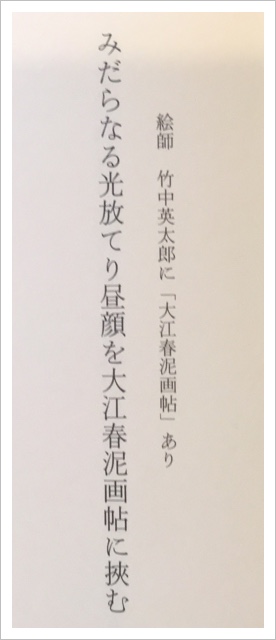 絵師　竹中英太郎に「大江春泥画帖」あり
みだらなる光放てり昼顔を大江春泥画帖に挟む